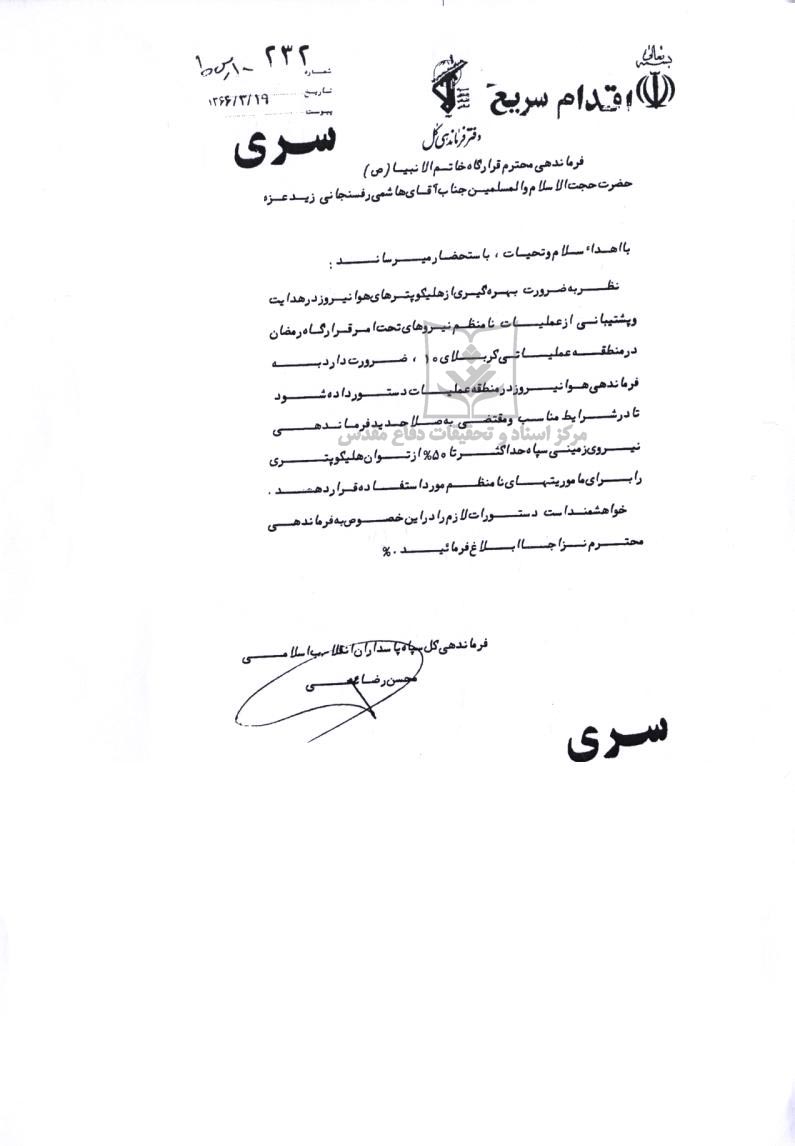 بسمه تعالی
اقدام سریع
شماره ۲۳۲
تاریخ ۱۳۶۶/۳/۱۹
پیوست
دفتر فرماندهی کل
سری
فرماندهی محترم قرارگاه خاتم الانبیا (ص)
حضرت حجت الاسلام والمسلمین جناب آقای هاشمی رفسنجانی زید عزه
با اهداء سلام وتحیات ، باستحضار میرساند :
نظر به ضرورت بهره گیری از هلیکوپترهای هوانیروز در هدایت
و پشتیبانی از عملیات نامنظم نیروهای تحت امر قرارگاه رمضان
در منطقه عملیاتی کربلای ۱۰ ، ضرورت دارد به
فرماندهی هوانیروز در منطقه عملیات دستور داده شود
تا در شرایط مناسب ومقتضی به صلاحدید فرماندهی
نیروی زمینی سپاه حداکثر تا ۵۰% از توان هلیکوپتری
را برای ماموریتهای نامنظم مورد استفاده قرار دهند .
خواهشمند است دستورات لازم را در این خصوص به فرماندهی
محترم نزاجا ابلاغ فرمائید . %
مرکز اسناد و تحقیقات دفاع مقدس
فرماندهی کل سپاه پاسداران انقلاب اسلامی
محسن رضائی
سری